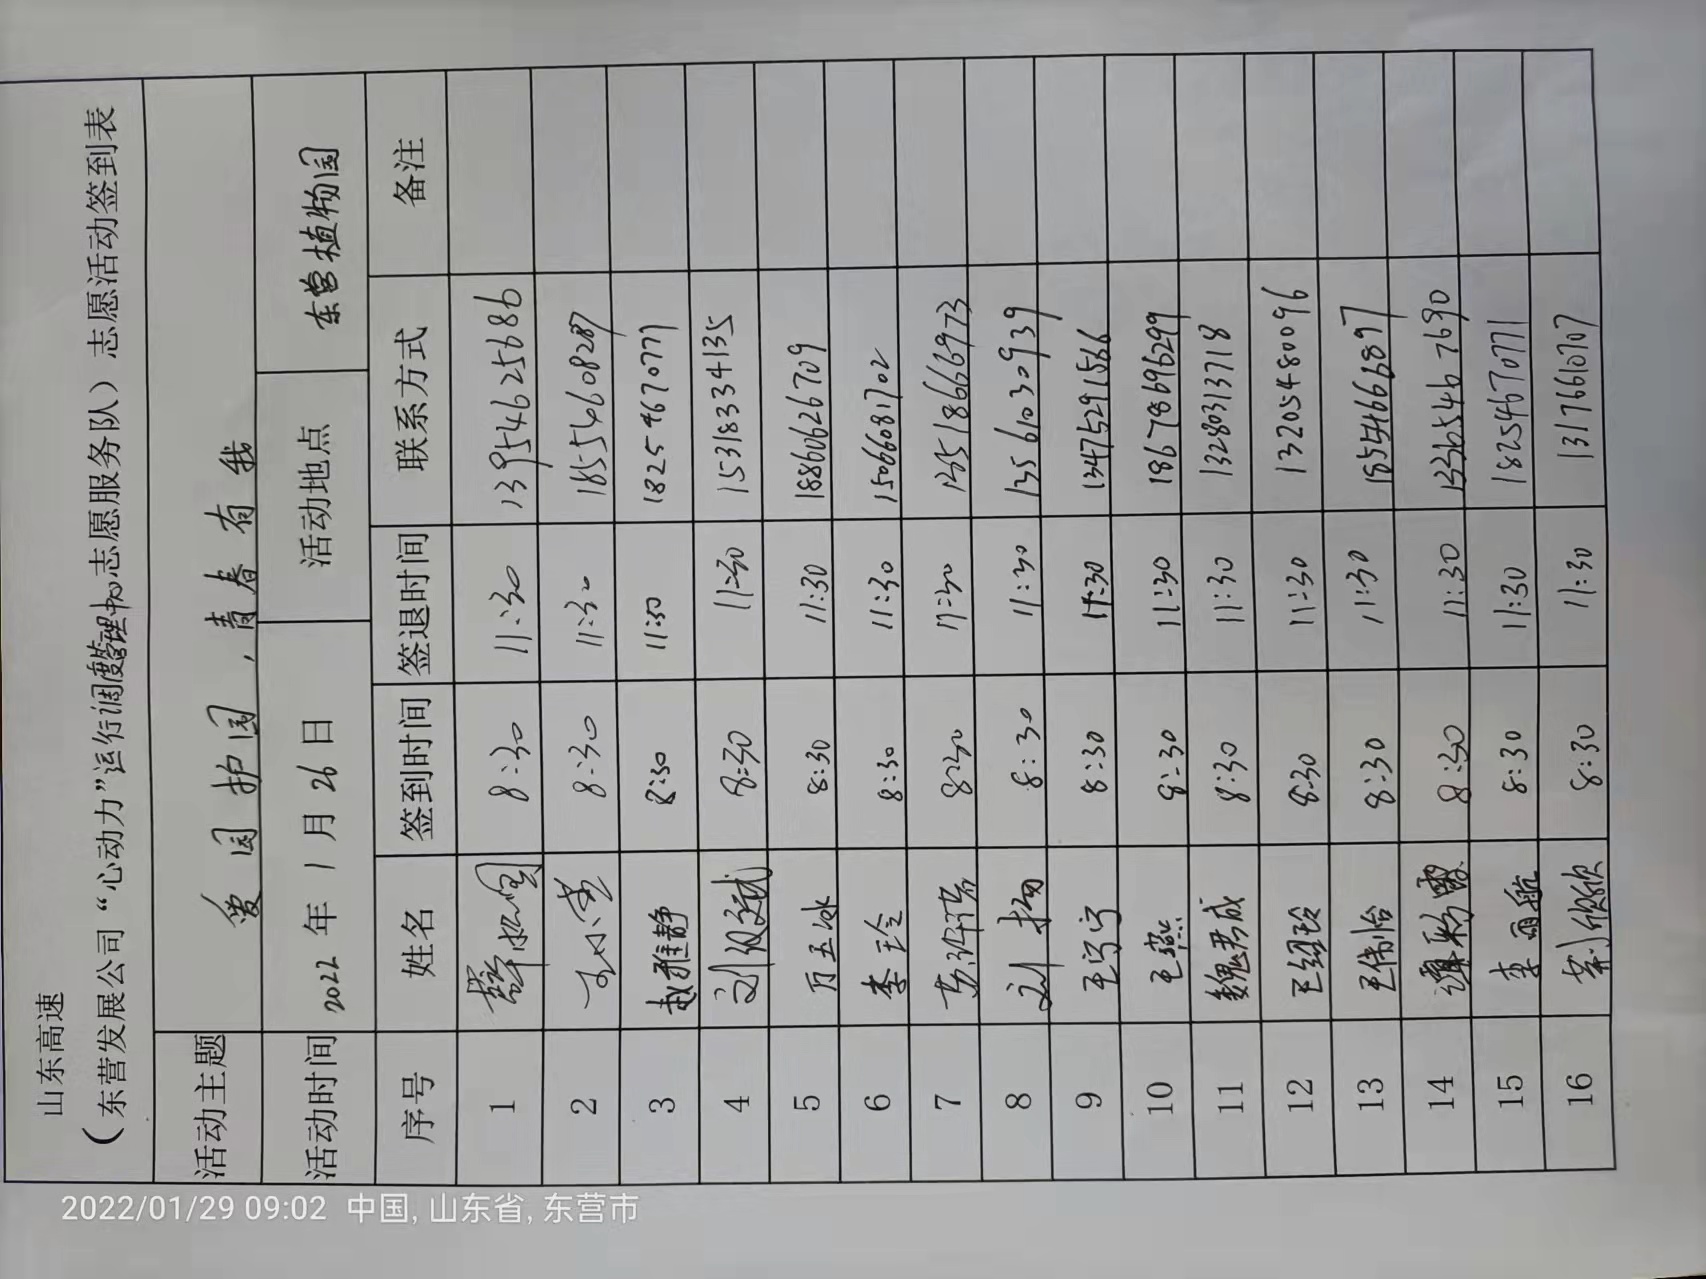 山东高速
（东营发展公司“心动力”运行调度管理中心志愿服务队）志愿活动签到表
活动主题 爱国护国，青春有我
活动时间 2022年1月26日 活动地点 东营植物园
序号 姓名 签到时间 签退时间 联系方式 备注
1 8:30 11:30 13954625686
2 8:30 11:30 18554608287
3 赵雅静 8:30 11:30 18254670777
4 8:30 11:30 15318334135
5 万玉冰 8:30 11:30 18860626709
6 李玲 8:30 11:30 15066081702
7 8:30 11:30
8 刘扬 8:30 11:30 13561030939
9 王宁宁 8:30 11:30 13475291586
10 王燕 8:30 11:30 18678696299
11 魏君成 8:30 11:30 13280313718
12 8:30 11:30 13205480096
13 王伟怡 8:30 11:30 18554666897
14 8:30 11:30
15 李丽航 8:30 11:30 18254670771
16 8:30 11:30 13176610707
2022/01/29 09:02 中国, 山东省, 东营市